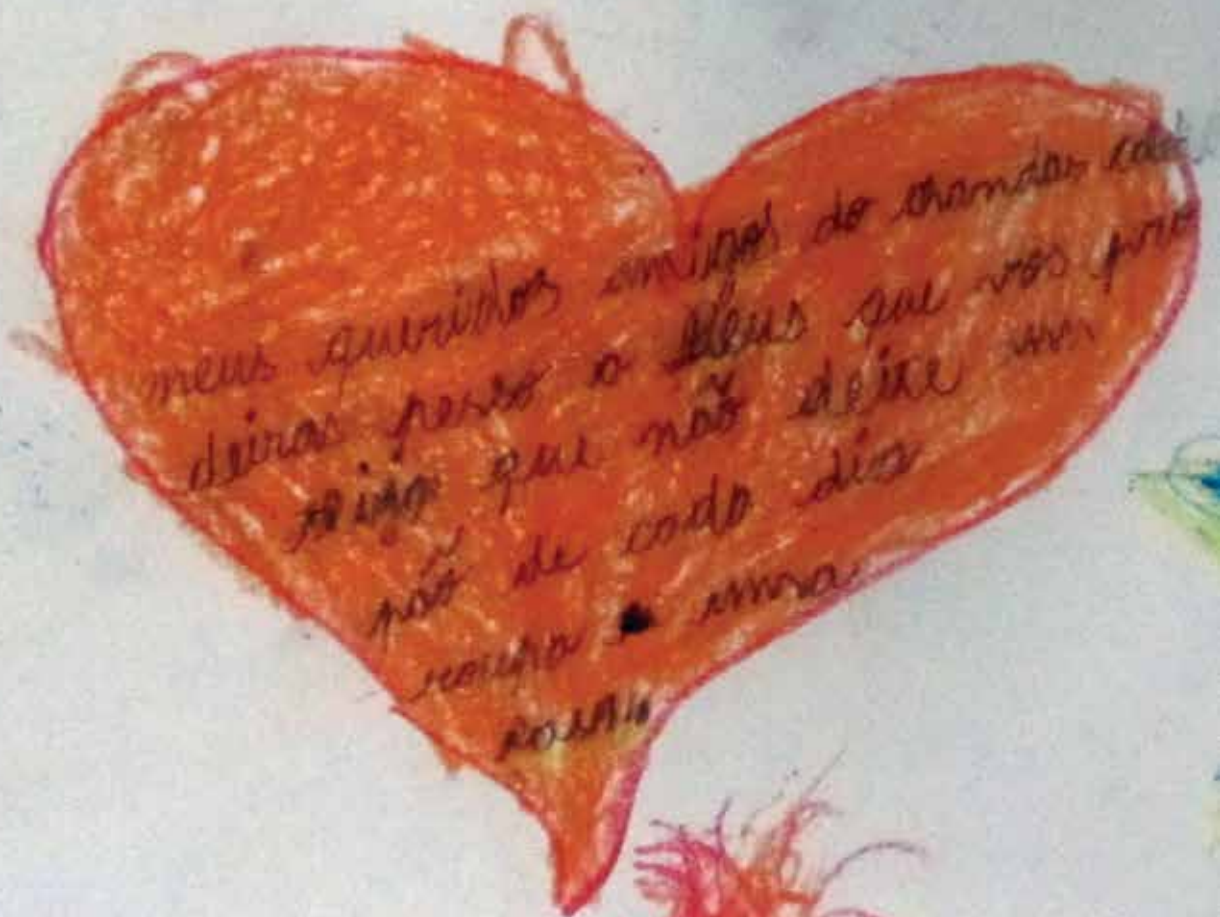 meus queridos amigos do chandas cal
deiras pesso a Deus que vos prote
que não deixe um
pão de cada dia
roupa uma